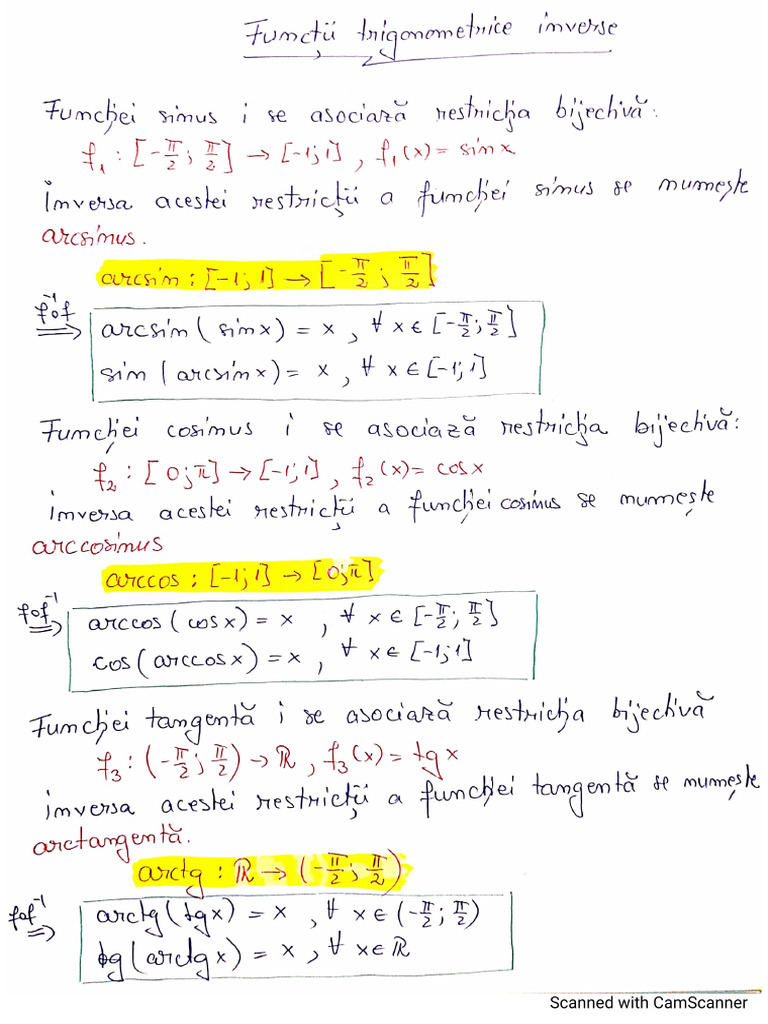 Funcții trigonometrice inverse
Funcției sinus i se asociază restricția bijectivă:
f₁ : [-π/2 ; π/2] → [-1; 1] , f₁(x) = sin x
Inversa acestei restricții a funcției sinus se numește
arcsinus.
arcsin : [-1; 1] → [-π/2 ; π/2]
f⁻¹∘f ⇒ arcsin(sin x) = x , ∀ x ∈ [-π/2 ; π/2]
sin(arcsin x) = x , ∀ x ∈ [-1; 1]
Funcției cosinus i se asociază restricția bijectivă:
f₂ : [0; π] → [-1; 1] , f₂(x) = cos x
inversa acestei restricții a funcției cosinus se numește
arccosinus
arccos : [-1; 1] → [0; π]
f∘f⁻¹ ⇒ arccos(cos x) = x , ∀ x ∈ [-π/2 ; π/2]
cos(arccos x) = x , ∀ x ∈ [-1; 1]
Funcției tangentă i se asociază restricția bijectivă
f₃ : (-π/2 ; π/2) → ℝ , f₃(x) = tg x
inversa acestei restricții a funcției tangentă se numește
arctangentă.
arctg : ℝ → (-π/2 ; π/2)
f∘f⁻¹ ⇒ arctg(tg x) = x , ∀ x ∈ (-π/2 ; π/2)
tg(arctg x) = x , ∀ x ∈ ℝ
Scanned with CamScanner